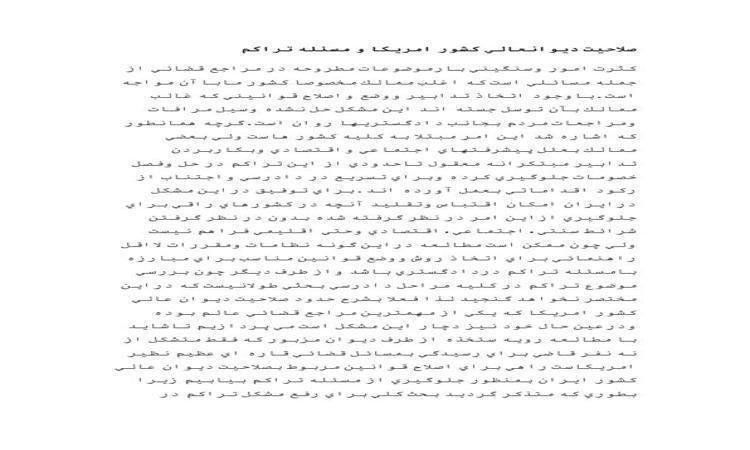 صلاحيت ديوانعالي كشور امريكا و مسئله تراكم
كثرت امور وسنگيني بارموضوعات مطروحه در مراجع قضائي از
جمله مسائلي است كه اغلب ممالك مخصوصا كشور مابا آن مواجه
است.باوجود اتخاذ تدابير ووضع واصلاح قوانيني كه غالب
ممالك بآن توسل جسته اند اين مشكل حل نشده وسيل مرافات
ومراجعات مردم بجانب دادگستريها روان است.گرچه همانطور
كه اشاره شد اين امر مبتلا به كليه كشور هاست ولي بعضي
ممالك بعلل پيشرفتهاي اجتماعي واقتصادي وبكاربردن
تدابير مبتكرانه معقول تاحدودي از اين تراكم در حل وفصل
خصومات جلوگيري كرده وبراي تسريع در دادرسي واجتناب از
ركود اقداماتي بعمل آورده اند.براي توفيق دراين مشكل
درايران امكان اقتباس وتقليد آنچه در كشورهاي راقي براي
جلوگيري ازاين امر در نظر گرفته شده بدون در نظر گرفتن
شرائط سنتي، اجتماعي، اقتصادي وحتي اقليمي فراهم نيست
ولي چون ممكن است مطالعه دراين گونه نظامات ومقررات لااقل
راهنمائي براي اتخاذ روش ووضع قوانين مناسب براي مبارزه
بامسئله تراكم دردادگستري باشد واز طرف ديگر چون بررسي
موضوع تراكم در كليه مراحل دادرسي بحثي طولانيست كه دراين
مختصر نخواهد گنجيد لذا فعلا بشرح حدود صلاحيت ديوان عالي
كشور امريكا كه يكي از مهمترين مراجع قضائي عالم بوده
ودرعين حال خود نيز دچار اين مشكل است مي پردازيم تاشايد
با مطالعه رويه ستخذه از طرف ديوان مزبور كه فقط متشكل از
نه نفر قاضي براي رسيدگي بمسائل قضائي قاره اي عظيم نظير
امريكاست راهي براي اصلاح قوانين مربوط بصلاحيت ديوان عالي
كشور ايران بمنظور جلوگيري از مسئله تراكم بيابيم زيرا
بطوري كه متذكر گرديد بحث كلي براي رفع مشكل تراكم در